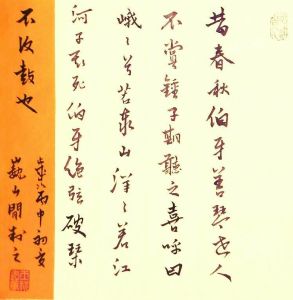 昔春秋伯牙善琴世人
不賞鍾子期聽之喜呼曰
峨々兮若泰山洋々若江
河子期死伯牙絶弦破琴
不復鼓也
歲次丙申初夏
巍山